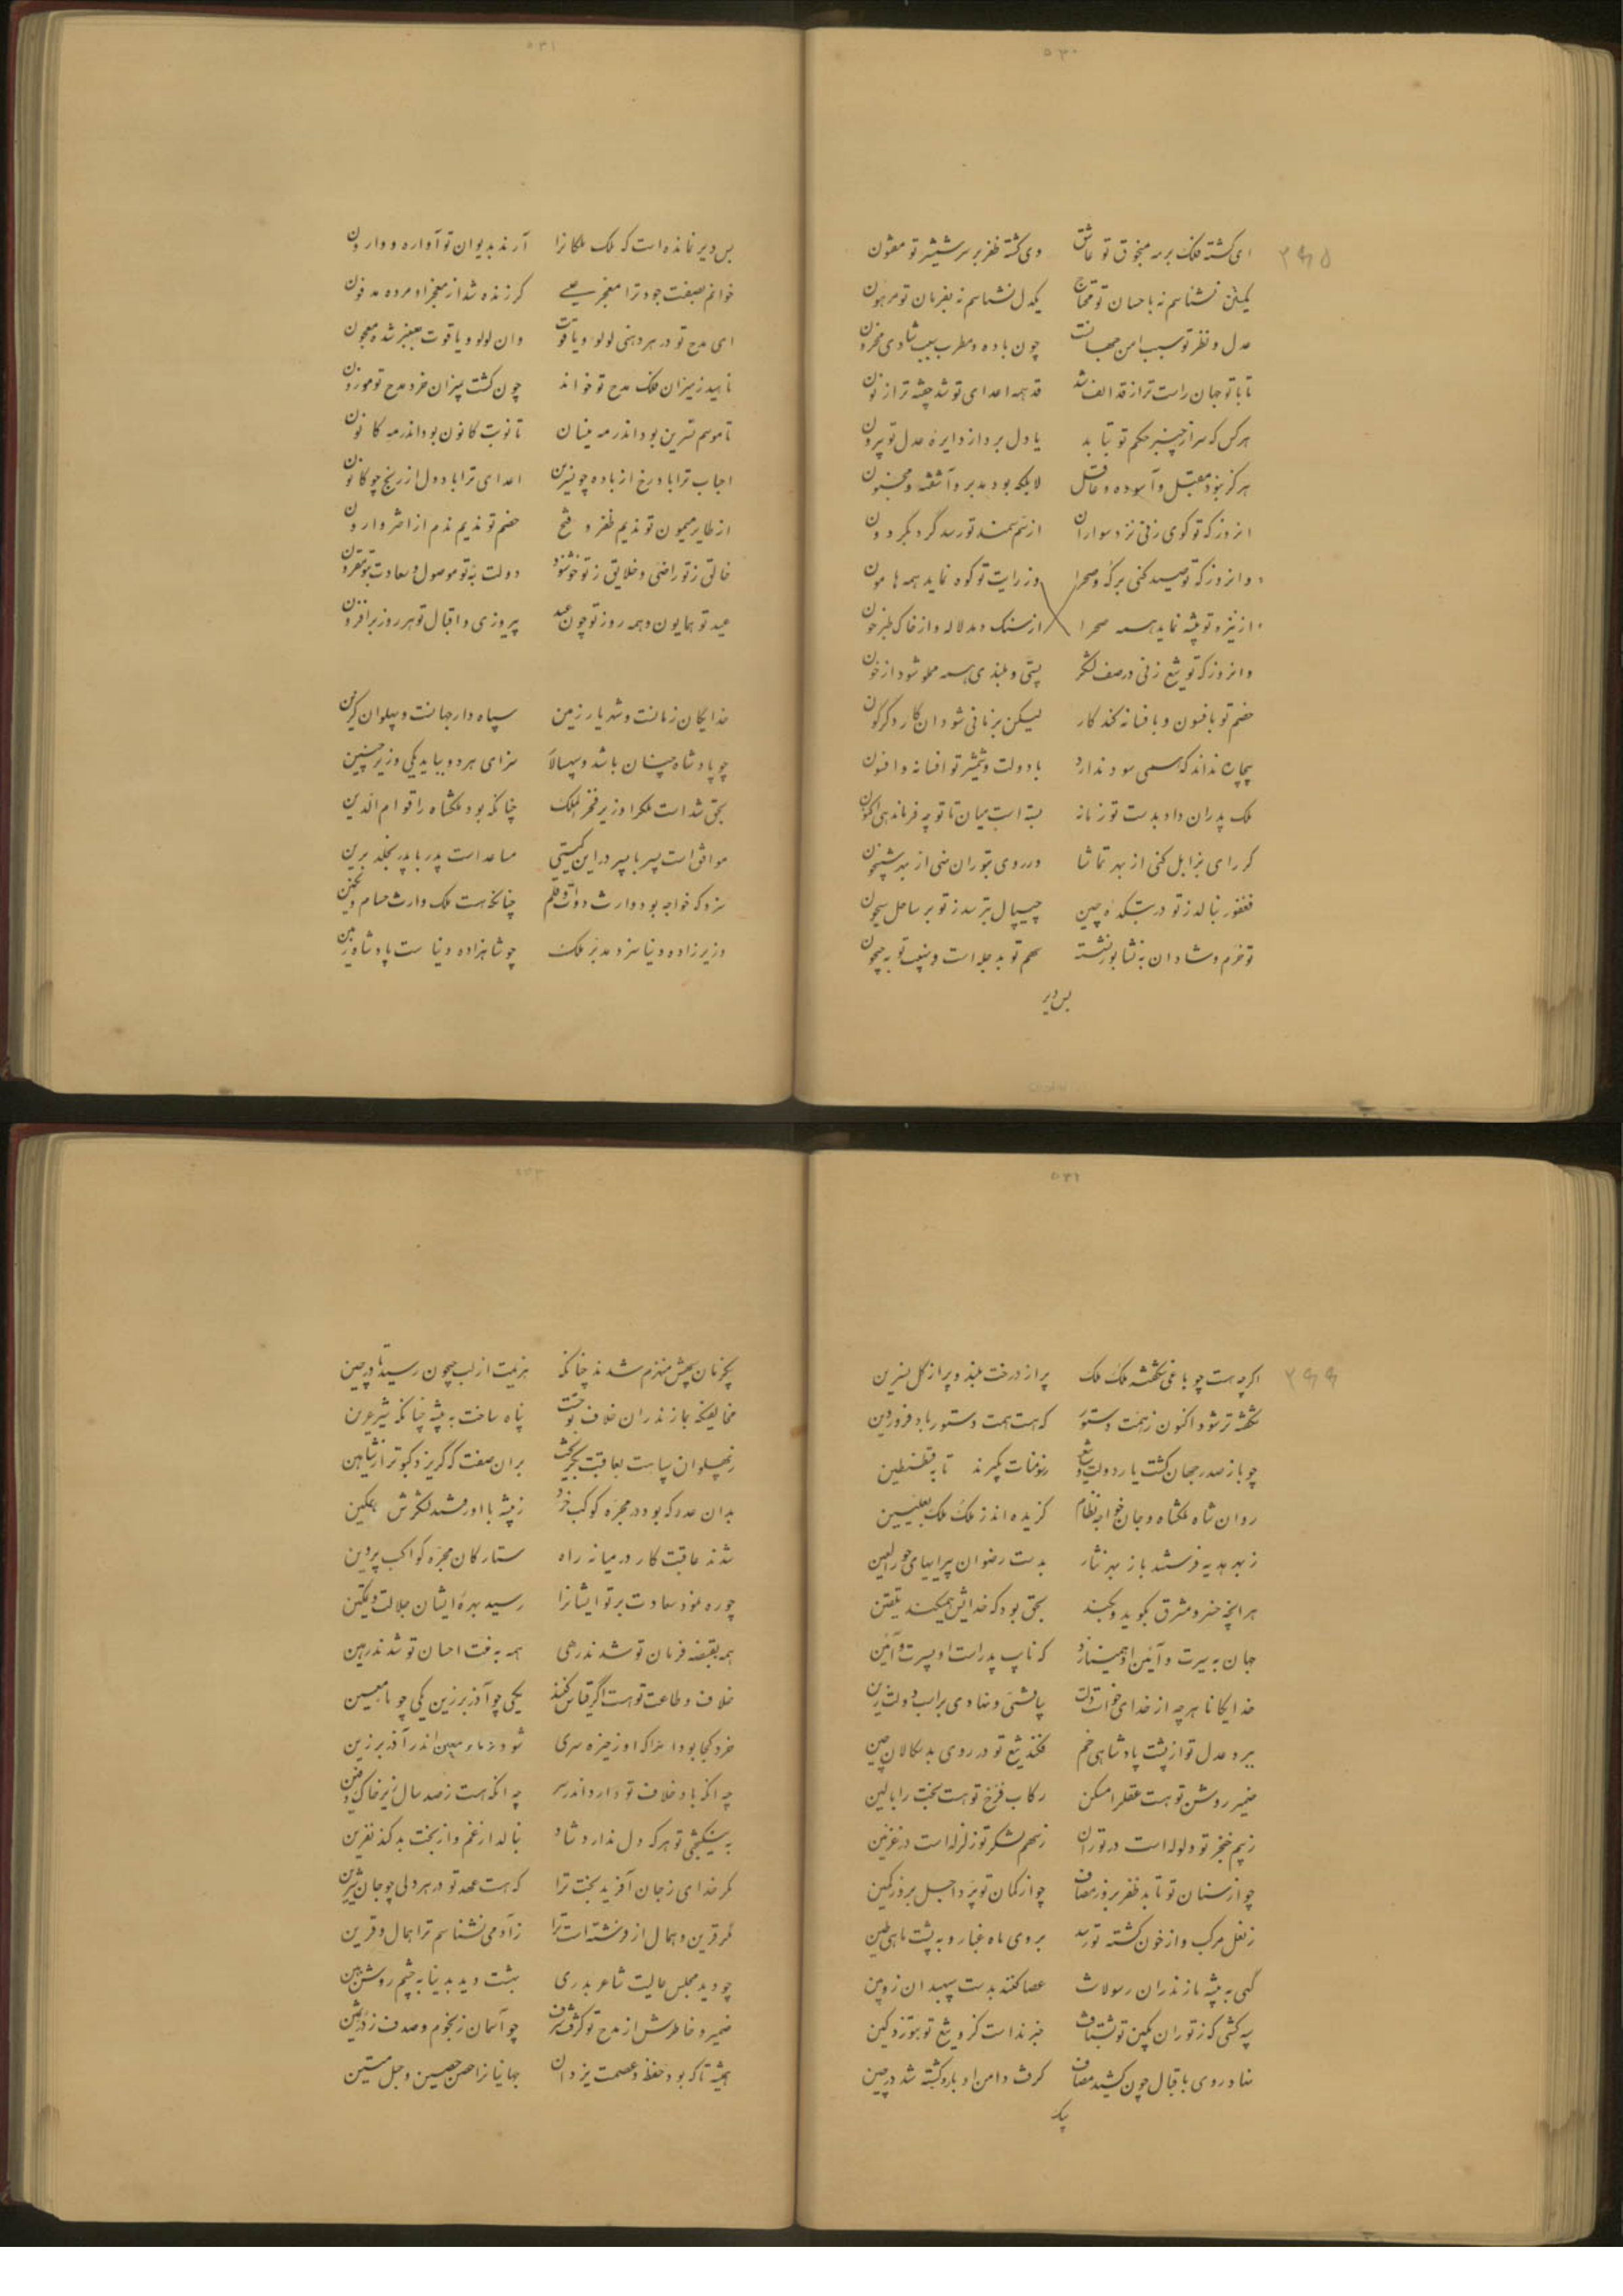 ۵۳۰
ای گشته فلک بر مه منجوق تو عاشق وی گشته ظفر بر سر شمشیر تو مفتون
یکتن نشناسم نه باحسان تو محتاج یکدل نشناسم نه بفرمان تو مرهون
عدل و نظر تو سبب امن جهانست چون باده و مطرب سبب شادی محزون
تا با تو جهان راست تر از قد الف شد قد همه اعدای تو شد چفته تر از نون
هر کس که سر از چنبر حکم تو بتابد یا دل برد از دایره عدل تو بیرون
هرگز نبود مقبل و آسوده و عاقل لابلکه بود مدبر و آشفته و مجنون
انروز که تو گوی زنی نزد سواران از سم سمند تو رسد گرد بگردون
وانروز که تو صید کنی بر که و صحرا وز رایت تو کوه نماید همه هامون
از نیزه تو بیشه نماید همه صحرا از سنگ دمد لاله و از خاک طبرخون
وانروز که تو تیغ زنی در صف لشکر پستی و بلندی همه مملو شود از خون
خصم تو بافسون و بافسانه کند کار لیکن بزمانی شود ان کار دگرگون
بیچاره نداند که همی سود ندارد با دولت و شمشیر تو افسانه و افسون
ملک پدران داد بدست تو زمانه بسته است میان تا تو چه فرماندهی اکنون
گر رای بزابل کنی از بهر تماشا ور روی بتوران نهی از بهر شبیخون
فغفور بنالد ز تو در بتکده چین چیپال بترسد ز تو بر ساحل سیحون
تو خرم و شادان به نشابور نشسته سهم تو بدجله است و نهیب تو به جیحون
بس دیر
۵۳۱
بس دیر نمانده است که ملک ملکانرا آرند بدیوان تو آواره و وارون
خوانم بصفت جود ترا معجز عیسی کر زنده شد از معجز او مرده مدفون
ای مدح تو در هر دهنی لولو و یاقوت وان لولو و یاقوت بعنبر شده معجون
ناهید ز میزان فلک مدح تو خواند چون گشت بمیزان خرد مدح تو موزون
تا موسم نسرین بود اندر مه نیسان تا نوبت کانون بود اندر مه کانون
احباب ترا باد رخ از باده چو نسرین اعدای ترا باد دل از رنج چو کانون
از طایر میمون تو ندیم ظفر و فتح خصم تو ندیم ندم از اختر وارون
خالق ز تو راضی و خلایق ز تو خوشنود دولت به تو موصول و سعادت بتو مقرون
عید تو همایون و همه روز تو چون عید پیروزی و اقبال تو هر روز بر افزون
خدایگان زمانست و شهریار زمین سپاه دار جهانست و پهلوان گزین
چو پادشاه چنان باشد و سپهسالار سزای هر دو بباید یکی وزیر چنین
بحق شد است ملکرا وزیر فخر الملک چنانکه بود ملکشاه را قوام الدین
موافق است پسر با پسر در این گیتی مساعد است پدر با پدر بخلد برین
سزد که خواجه بود وارث دوات و قلم چنانکه هست ملک وارث حسام و نگین
وزیر زاده و دنیا سزد مدبر ملک چو شاهزاده دنیا ست پادشاه زمین
۵۳۲
اگرچه هست چو باغی شکفته ملک ملک پر از درخت بلند و پر از گل نسرین
شکفته تر شود اکنون ز همت دستور که هست همت دستور باد فروردین
چو باز صدر جهان گشت یار دولت و تیغ ز سومنات بگیرند تا به قسطنطین
روان شاه ملکشاه و جان خواجه نظام گزیده اند ز ملک ملک بعلیین
ز بهر هدیه فرستند باز بهر نثار بدست رضوان پیرایهای حور العین
هر انچه خسرو مشرق بگوید و بکند بحق بود که خدایش همیکند تلقین
جهان به سیرت و آئین او همینازد که نایب پدر است او بسیرت و آئین
خدایگانا هر چه از خدای خواست دلت بیافتی و نهادی بر اسب دولت زین
ببرد عدل تو از پشت پادشاهی خم فکند تیغ تو در روی بدسگالان چین
ضمیر روشن تو هست عقلرا مسکن رکاب فرخ تو هست بخت را بالین
ز بیم خنجر تو ولوله است در توران ز سهم لشکر تو زلزله است در غزنین
چو از سنان تو تابد ظفر بروز مصاف چو از کمان تو پرد اجل بروز کمین
ز نعل مرکب و از خون کشته تو رسد بروی ماه غبار و به پشت ماهی طین
گهی به بیشه مازندران رسولانت عصا کنند بدست سپهبدان زوبین
سپه کشی که ز توران بکین تو بشتافت خبر نداست کزو تیغ تو بتوزد کین
نهاد روی باقبال چون کشید مصاف گرفت دامن ادبار و کشته شد در حین
یک
۵۳۳
یکزمان سپهش منهزم شدند چنانکه هزیمت از لب جیحون رسید تا در چین
مخالفیکه بمازندران خلاف تو جست پناه ساخت به بیشه چنانکه شیر عرین
ز پهلوان سپاهت بعاقبت بگریخت بران صفت که گریزد کبوتر از شاهین
بدان عدد که بود در مجره کوکب خرد ز بیشه با او رفتند لشکرش همگین
شدند عاقبت کار در میانه راه ستارگان مجره کواکب پروین
چو ره نمود سعادت بر تو ایشانرا رسید بهره ایشان جلالت و تمکین
همه بقبضه فرمان تو شدند رهی همه به منت احسان تو شدند رهین
خلاف و طاعت تو هست اگر قیاس کنند یکی چو آذر برزین یکی چو ماء معین
خرد کجا بود انرا که او ز خیره سری شود ز ماء معین اندر آذر برزین
چه انکه باد خلاف تو دارد اندر سر چه انکه هست ز صد سال زیر خاک دفین
به نیکبختی تو هر که دل ندارد شاد بنالد از غم و از بخت بد کند نفرین
مگر خدای ز جان آفرید بخت ترا که هست عهد تو در هر دلی چو جان شیرین
مگر قرین و همال از فرشته است ترا ز آدمی نشناسم ترا همال و قرین
چو دید مجلس عالیت شاعر بدری بهشت دید بدنیا به چشم روشن بین
ضمیر و خاطرش از مدح تو گرفت شرف چو آسمان ز نجوم و صدف ز در ثمین
همیشه تا که بود حفظ و عصمت یزدان جهانیانرا حصن حصین و حبل متین